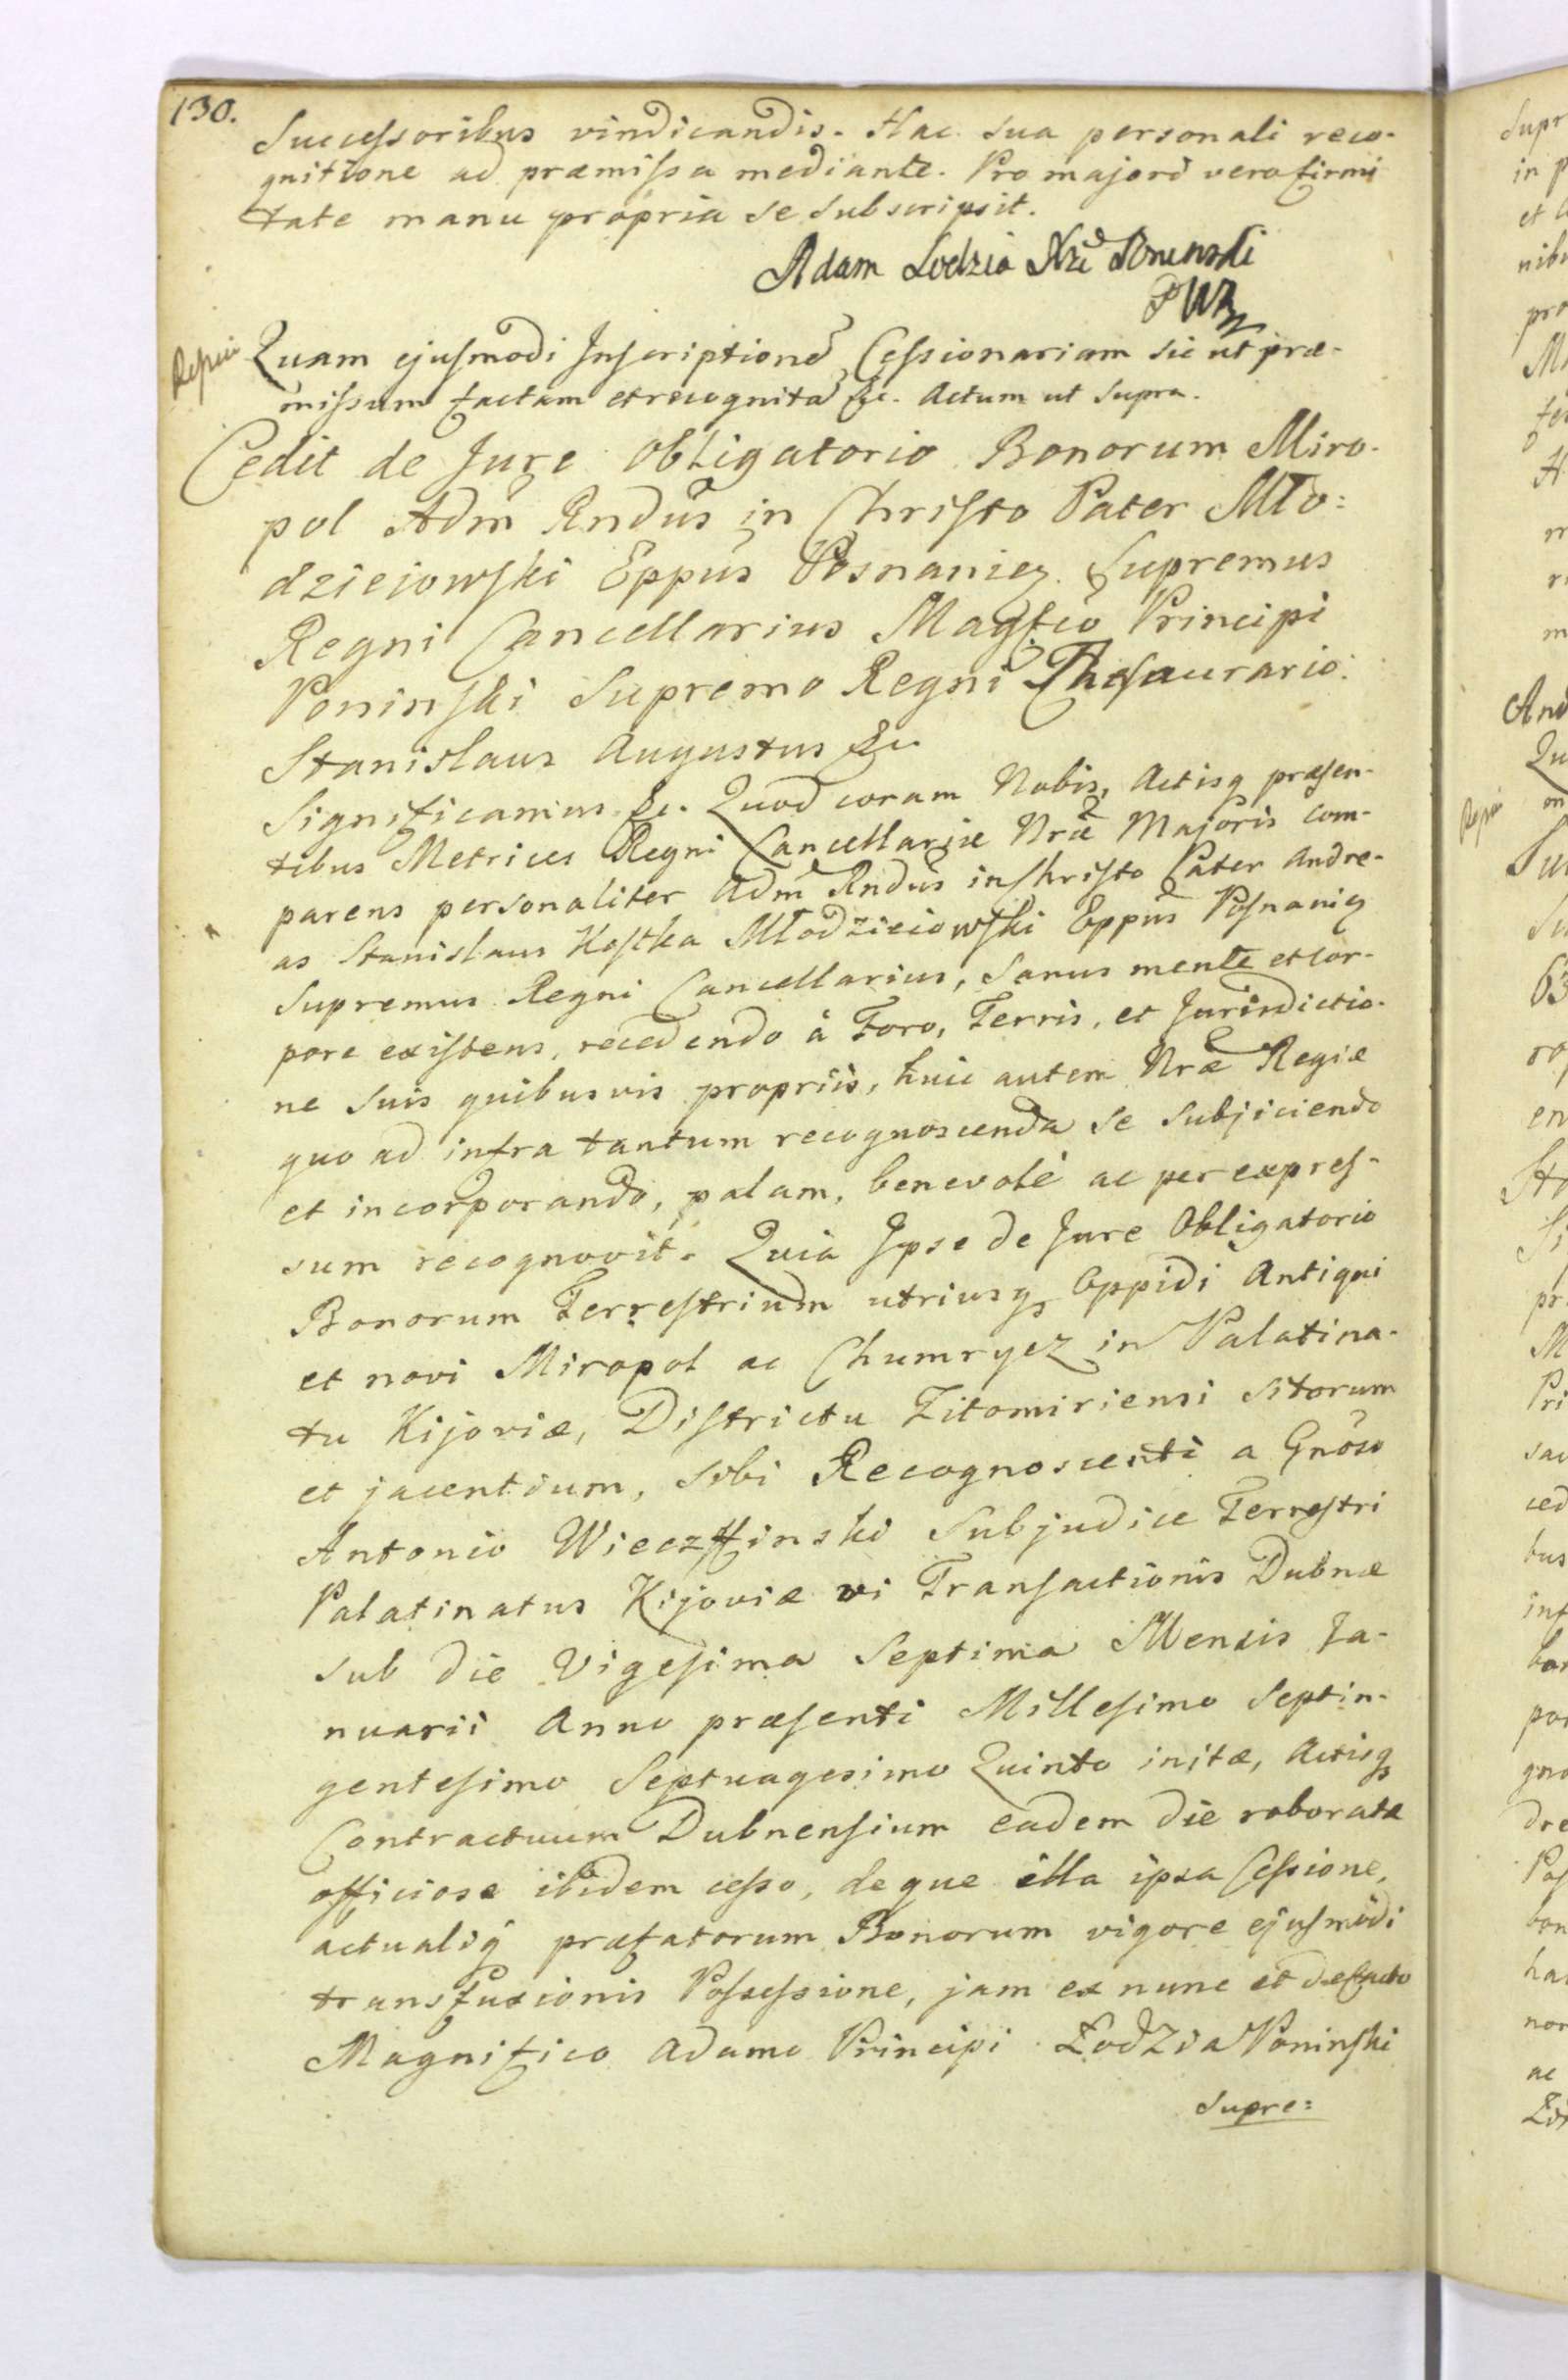 130.
Successoribus vindicandis. Hac sua personali reco-
gnitione ad præmissa mediante. Pro majori vero firmi
tate manu propria se subscripsit.
Adam Lodzia Xże Poninski
PWK
Quam ejusmodi Inscriptionē Cessionariam sic ut præ-
missum factam et recognitā &c. Actum ut supra.
Cedit de Jure Obligatorio Bonorum Miro-
pol Adm̄ Rndūs in Christo Pater Mło=
dzieiowski Eppūs Posnanień. Supremus
Regni Cancellarius Magfco Principi
Poninski Supremo Regni Thesaurario.
Stanislaus Augustus &c.
Significamus &c. Quod coram Nobis, Actisq præsen-
tibus Metrices Regni Cancellariæ Nræ Majoris com-
parens personaliter Adm̄ Rndūs in Christo Pater Andre-
as Stanislaus Kostka Młodzieiowski Eppūs Posnanień
Supremus Regni Cancellarius, sanus mente et cor-
pore existens, recedendo à Foro, Terris, et Jurisdictio-
ne suis quibusvis propriis, huic autem Nræ Regiæ
quo ad infra tantum recognoscenda se subjiciendo
et incorporando, palam, benevolè ac per expres-
sum recognovit. Quia Ipse de Jure Obligatorio
Bonorum Terrestrium utriusq Oppidi Antiqui
et novi Miropol ac Chumrycz in Palatina-
tu Kijoviæ, Districtu Zitomiriensi sitorum
et jacentium, sibi Recognoscenti a Gnōso
Antonio Wieczffinski Subjudice Terrestri
Palatinatus Kijoviæ vi Transactionis Dubnæ
sub die Vigesima Septima Mensis Ja-
nuarii Anno præsenti Millesimo Septin-
gentesimo Septuagesimo Quinto initæ, Actisq
Contractuum Dubnensium eadem die roboratæ
officiose ibidem cesso, deque illa ipsa Cessione,
actualiq præfatorum Bonorum vigore ejusmodi
transfusionis Possessione, jam ex nunc et de facto
Magnifico Adamo Principi Łodzia Poninski
Supre=